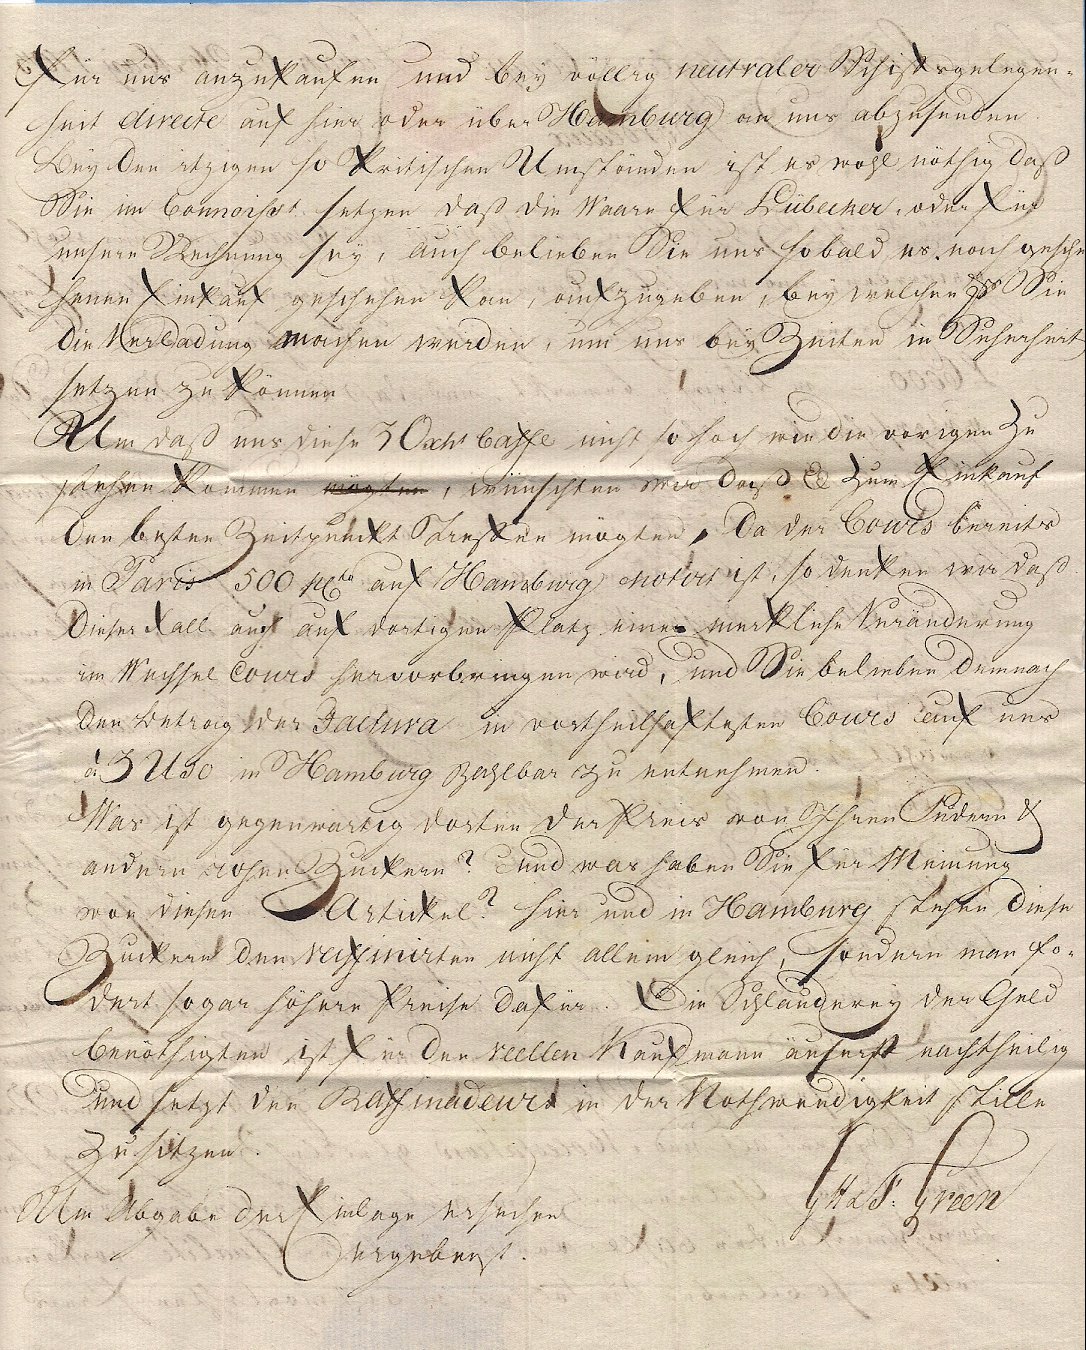 für uns anzukaufen und bey völlig neutraler Schiffsgelegen-
heit directe auf hier oder über Hamburg an uns abzusenden.
Bey den itzigen so kritischen Umständen ist es wohl nöthig daß
Sie im Connoisst. setzen daß die Waare für Lübecker, oder für
unsere Rechnung sey, auch belieben Sie uns sobald es nach gesche
henen Einkauf geschehen kan, aufzugeben, bey welchen Sie
die Verladung machen werden, um uns bey Zeiten in Sicherheit
setzen zu können
Um daß uns diese 3 Oxht Caffe nicht so hoch wie die vorigen zu
stehen kommen mögten, wünschten wir daß Sie zum Einkauf
den besten Zeitpunckt treffen mögten, Da der Cours bereits
in Paris 500 auf Hamburg notirt ist, so denken wir daß
dieser Fall auch auf dortigen Platz eine merkliche Veränderung
im Wechsel Cours hervorbringen wird, und Sie belieben demnach
den Betrag der Factura in vortheilhaftesten Cours auf uns
à 3 Uso in Hamburg zahlbar zu entnehmen.
Was ist gegenwärtig dorten der Preis von Ihren Pudern &
andern rohen Zuckern? und was haben Sie für Meinung
von diesen Artickel? hier und in Hamburg stehen diese
Zuckern den raffinirten nicht allein gleich, sondern man fo-
dert sogar höhere Preise dafür. Die Schlauderey der Geld
benöthigten ist für den reellen Kaufmann äuserst nachtheilig
und setzt den Raffinadeurs in der Nothwendigkeit stille
zu sitzen.
Um Abgabe der Einlage ersuchen
ergebenst.
Green